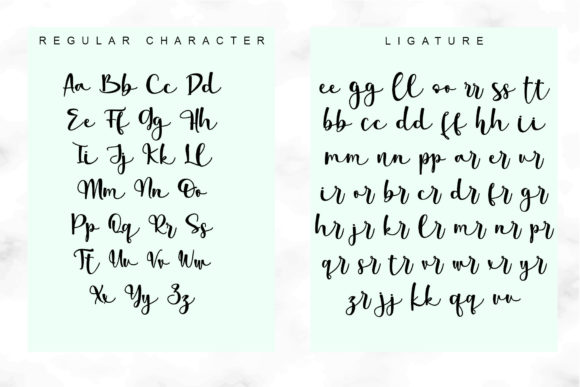 REGULAR CHARACTER
Aa Bb Cc Dd
Ee Ff Gg Hh
Ii Jj Kk Ll
Mm Nn Oo
Pp Qq Rr Ss
Tt Uu Vv Ww
Xx Yy Zz
LIGATURE
ee gg ll oo rr ss tt
bb cc dd ff hh ii
mm nn pp ar er ur
ir or br cr dr fr gr
hr jr kr lr mr nr pr
qr sr tr vr wr xr yr
zr jj kk qq vv